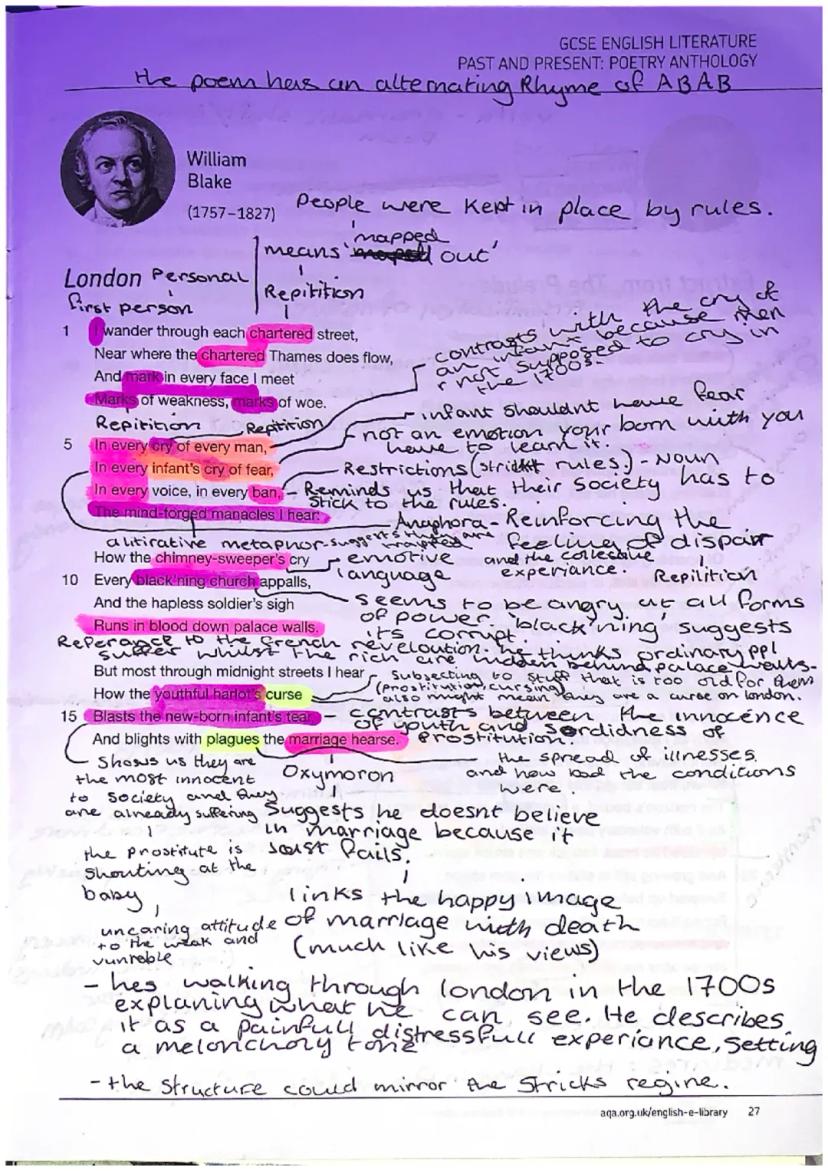 GCSE ENGLISH LITERATURE
PAST AND PRESENT: POETRY ANTHOLOGY
the poem has an alternating Rhyme of ABAB
William
Blake
(1757–1827)
People were kept in place by rules.
mapped
means 'moped out'
London
Personal
first person
Repitition
1 I wander through each chartered street,
Near where the chartered Thames does flow,
And mark in every face I meet
Marks of weakness, marks of woe.
contrasts with the cry of
an infant because men
r not supposed to cry in
the 1700s.
Repitition Reptition
infant shouldnt have fear
not an emotion your born with you
have to learn it.
5 In every cry of every man,
In every infant's cry of fear,
In every voice, in every ban,
The mind-forged manacles I hear:
Restrictions (strickt rules.) - Noun
Reminds us that their society has to
stick to the rules.
Anaphora - Reinforcing the
feeling of dispair
and the collective
experiance.
Repilition
alitirative metaphor - suggests they are
trapped
How the chimney-sweeper's cry
10 Every black'ning church appalls,
And the hapless soldier's sigh
Runs in blood down palace walls.
emotive
language
seems to be angry at all forms
of power. 'black'ning' suggests
its corrupt.
Referance to the french reveloution. he thinks ordinary ppl
suffer whilst the rich are hidden behind palace walls.
But most through midnight streets I hear
How the youthful harlot's curse
15 Blasts the new-born infant's tear
And blights with plagues the marriage hearse.
Subjecting to stuff that is too old for them
(prostitution, cursing)
also might mean they are a curse on london.
contrasts between the innocence
of youth and sordidness of
prostitution.
the spread of illnesses
and how bad the conditions
were.
Shows us they are
the most innocent
to society and they
are already suffering
the prostitute is
shouting at the
baby
uncaring attitude
to the weak and
vunrable
Oxymoron
Suggests he doesnt believe
in marriage because it
Just fails,
links the happy image
of marriage with death
(much like his views)
- hes walking through london in the 1700s
explaning what he can see. He describes
it as a painfull distressfull experiance, setting
a meloncholy tone
- the structure could mirror the stricks regine.
aqa.org.uk/english-e-library 27